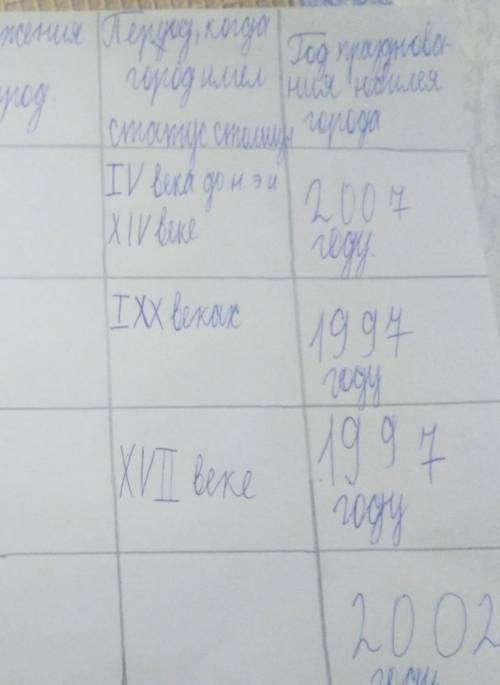 жения
род
Период, когда
город имел
статус столицы
Год празднова-
ния юбилея
города
IV века до н. э и
XIV веке
2007
году.
IXX веках
1997
году
XVII веке
1997
году
2002
году